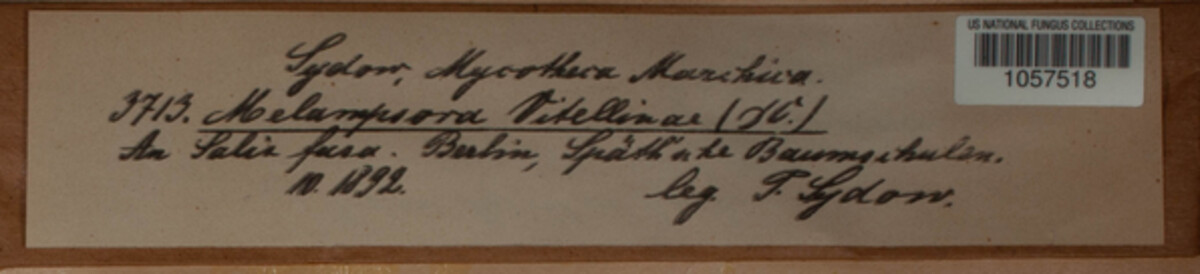 US NATIONAL FUNGUS COLLECTIONS
1057518
Sydow, Mycotheca Marchica.
3713. Melampsora Vitellinae (DC.)
An Salix fusa. Berlin, Späth'sche Baumschulen.
10. 1892. leg. P. Sydow.